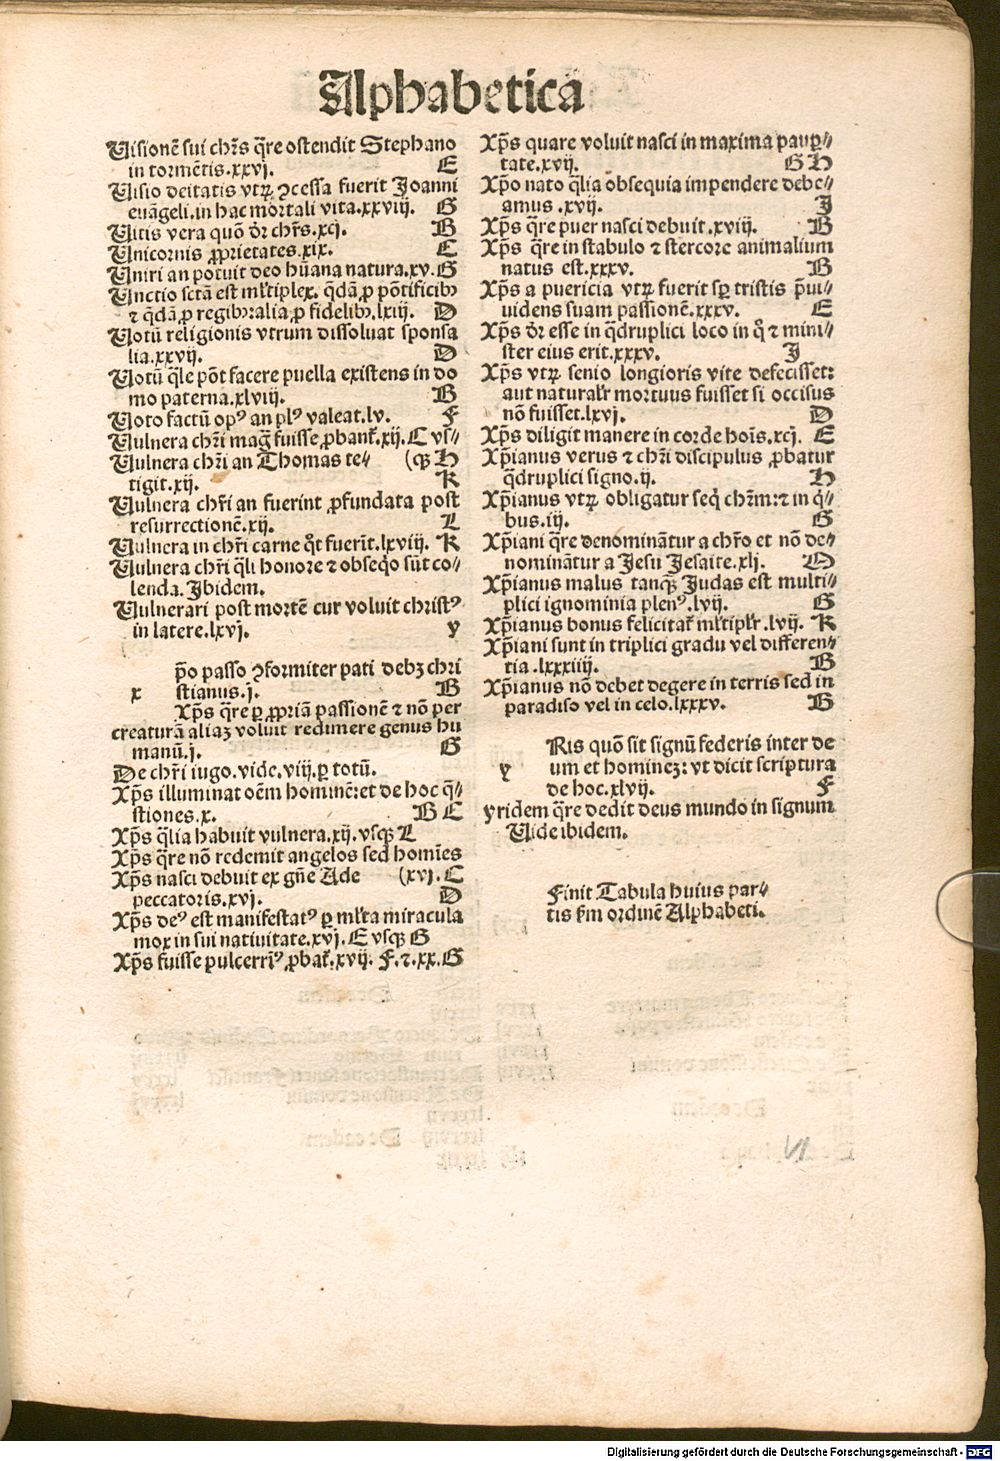 Alphabetica
Uisionē sui chr̄s q̄re ostendit Stephano
in tormētis.xxvj. E
Uisio deitatis vtꝝ ꝯcessa fuerit Joanni
euāgeli.in hac mortali vita.xxviij. G
Uitis vera quō dr̄ chr̄s.xcj. B
Unicornis ꝓprietates.xix. C
Uniri an potuit deo hūana natura.xv. G
Unctio sctā est ml̄tiplex. q̄dā ꝓ pōtificibꝰ
⁊ q̄dā ꝓ regibꝰ alia ꝓ fidelibꝰ.lxiij. D
Uotū religionis vtrum dissoluat sponsa
lia.xxvij. D
Uotū q̄le pōt facere puella existens in do
mo paterna.xlviij. B
Uoto factū opꝰ an plꝰ valeat.lv. F
Uulnera chr̄i mag̃ fuisse ꝓbant̃.xij. C vs⸗
Uulnera chr̄i an Thomas te⸗ (qꝫ H
tigit.xij. K
Uulnera chr̄i an fuerint ꝓfundata post
resurrectionē.xij. L
Uulnera in chr̄i carne q̊t fuerīt.lxviij. K
Uulnera chr̄i q̄li honore ⁊ obseq̊o sūt co⸗
lenda. Ibidem.
Uulnerari post mortē cur voluit christꝰ
in latere.lxvj. y
p̄o passo ꝯformiter pati debꝫ chri
x stianus.j. B
Xp̄s q̄re ꝑ ꝓpriā passionē ⁊ nō per
creaturā aliaꝫ voluit redimere genus hu
manū.j. G
De chr̄i iugo.vide.viij.ꝑ totū.
Xp̄s illuminat oēm hominē:et de hoc q̄⸗
stiones.x. B C
Xp̄s q̄lia habuit vulnera.xij. vsqꝫ L
Xp̄s q̄re nō redemit angelos sed homīes
Xp̄s nasci debuit ex gn̄e Ade (xvj. C
peccatoris.xvj. D
Xp̄s deꝰ est manifestatꝰ ꝑ ml̄ta miracula
mox in sui natiuitate.xvj. E vsqꝫ G
Xp̄s fuisse pulcerr̄imꝰ ꝓbat̃.xvij. F.⁊.xx. G
Xp̄s quare voluit nasci in maxima pauꝑ⸗
tate.xvij. G H
Xp̄o nato q̄lia obsequia impendere debe⸗
amus .xvij. J
Xp̄s q̄re puer nasci debuit.xviij. B
Xp̄s q̄re in stabulo ⁊ stercore animalium
natus est.xxxv. B
Xp̄s a puericia vtꝝ fuerit sp̄ tristis p̄ui⸗
uidens suam passionē.xxxv. E
Xp̄s dr̄ esse in q̄druplici loco in q̊ ⁊ mini⸗
ster eius erit.xxxv. J
Xp̄s vtꝝ senio longioris vite defecisset:
aut naturalr̄ mortuus fuisset si occisus
nō fuisset.lxvj. D
Xp̄s diligit manere in corde hoīs.xcj. E
Xp̄ianus verus ⁊ chr̄i discipulus ꝓbatur
q̄druplici signo.ij. H
Xp̄ianus vtꝝ obligatur seq̄ chr̄m:⁊ in q̄⸗
bus.iij. G
Xp̄iani q̄re denominātur a chr̄o et nō de⸗
nominātur a Jesu Jesaite.xlj. O
Xp̄ianus malus tanqꝫ Judas est multi⸗
plici ignominia plenꝰ.lvij. G
Xp̄ianus bonus felicitat̃ ml̄tiplr̄.lvij. K
Xp̄iani sunt in triplici gradu vel differen⸗
tia .lxxxiiij. B
Xp̄ianus nō debet degere in terris sed in
paradiso vel in celo.lxxxv. B
Ris quō sit signū federis inter de
y um et hominez: vt dicit scriptura
de hoc.xlvij. F
yridem q̄re dedit deus mundo in signum
Uide ibidem.
Finit Tabula huius par⸗
tis ẜm ordinē Alphabeti.
VI
Digitalisierung gefördert durch die Deutsche Forschungsgemeinschaft - DFG